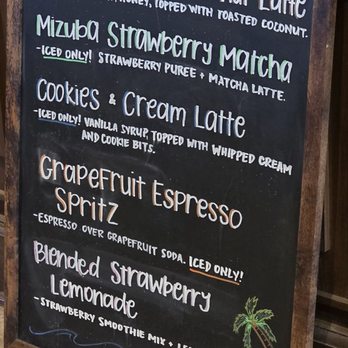 Latte
HONEY, TOPPED WITH TOASTED COCONUT.
Mizuba Strawberry Matcha
-ICED ONLY! STRAWBERRY PUREE + MATCHA LATTE.
Cookies & Cream Latte
-ICED ONLY! VANILLA SYRUP, TOPPED WITH WHIPPED CREAM
AND COOKIE BITS.
GRAPEFRUIT ESPRESSO
SPRITZ
-ESPRESSO OVER GRAPEFRUIT SODA. ICED ONLY!
Blended Strawberry
Lemonade
-STRAWBERRY SMOOTHIE MIX +